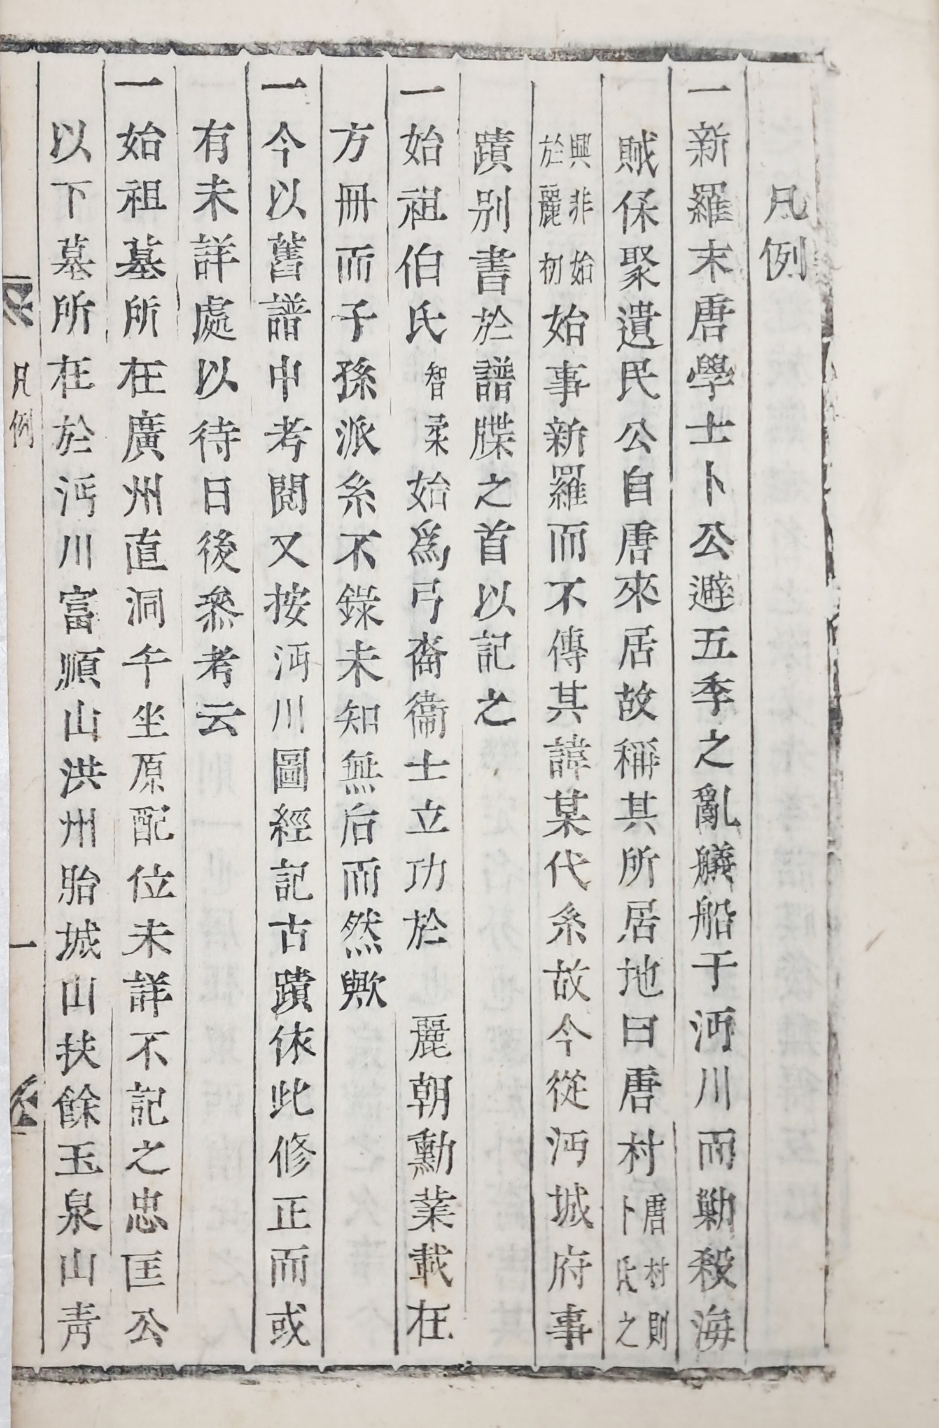 凡例
一新羅末唐學士卜公避五季之亂艤船于沔川而勦殺海
賊保聚遺民公自唐來居故稱其所居地曰唐村唐村則卜氏之
興非始於麗初始事新羅而不傳其諱某代系故今從沔城府事
蹟別書於譜牒之首以記之
一始祖伯氏智柔始爲弓裔衛士立功於 麗朝勳業載在
方冊而子孫派系不錄未知無后而然歟
一今以舊譜中考閱又按沔川圖經記古蹟依此修正而或
有未詳處以待日後參考云
一始祖墓所在廣州直洞午坐原配位未詳不記之忠匡公
以下墓所在於沔川富順山洪州胎城山扶餘玉泉山靑
凡例
一